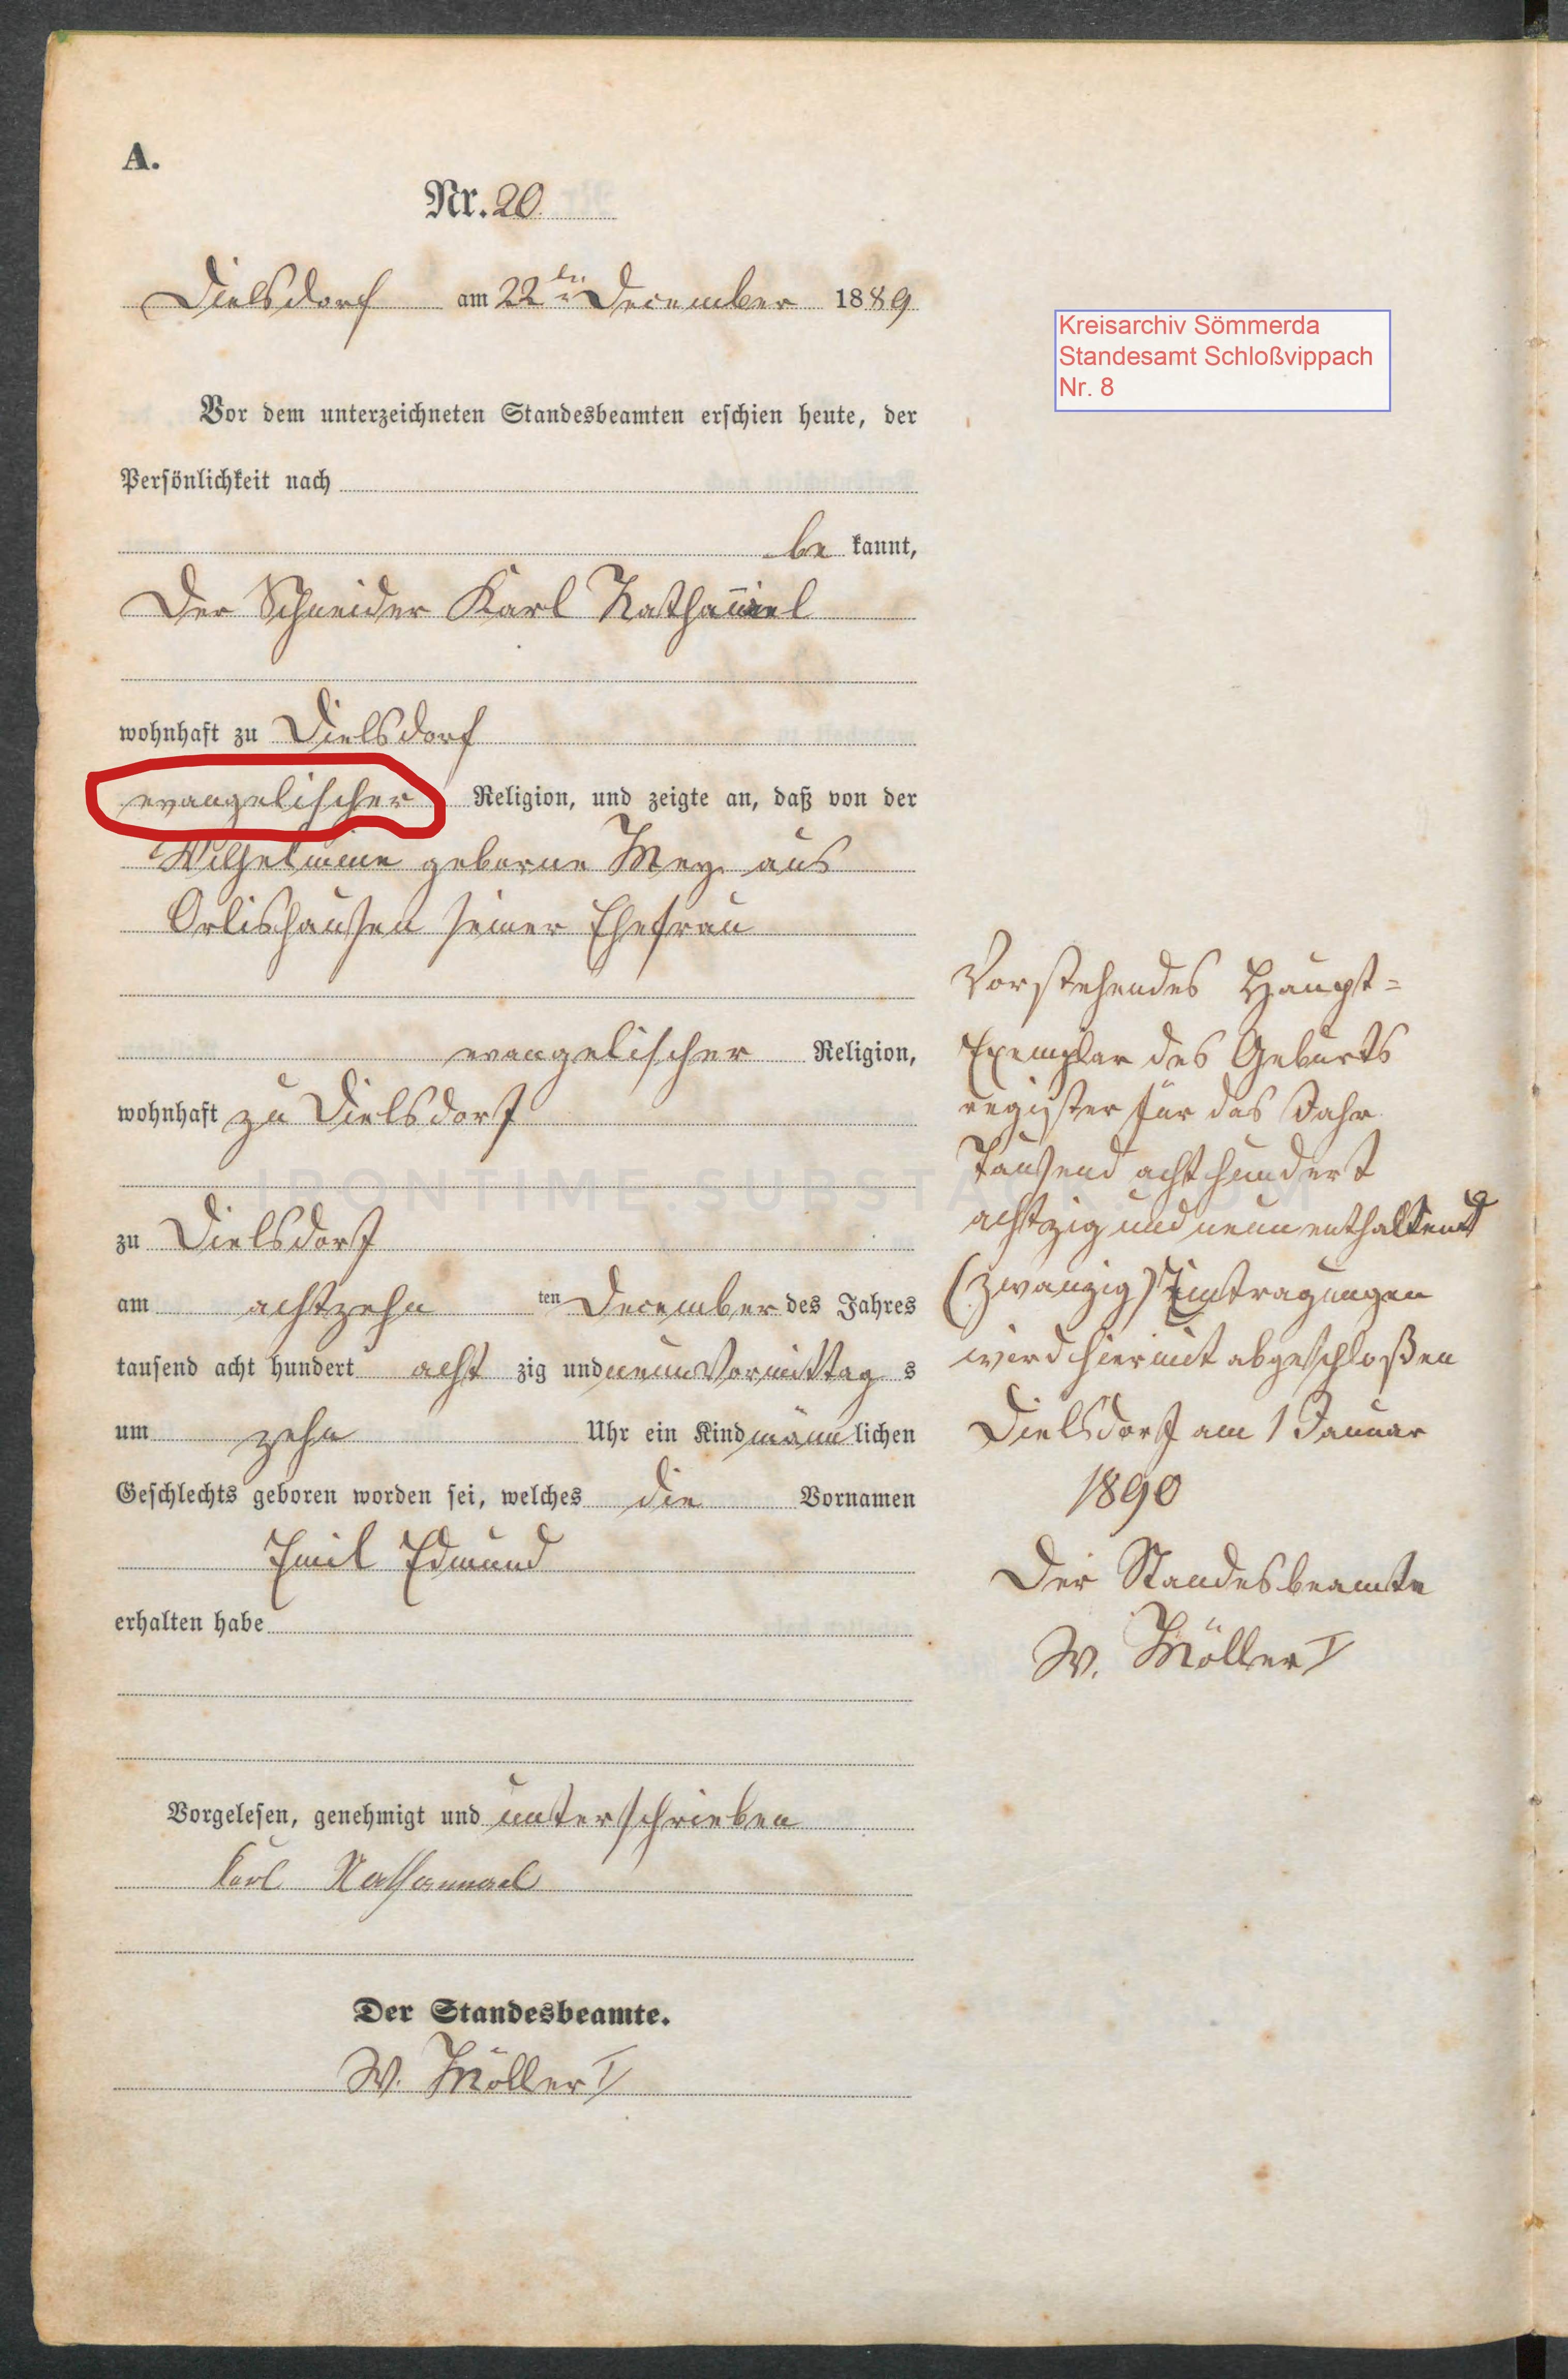 A.
Nr. 20.
Dielsdorf am 22ten December 1889
Kreisarchiv Sömmerda
Standesamt Schloßvippach
Nr. 8
Vor dem unterzeichneten Standesbeamten erschien heute, der
Persönlichkeit nach
be kannt,
Der Schneider Karl
wohnhaft zu Dielsdorf
evangelischer Religion, und zeigte an, daß von der
Wilhelmine geborne Mey aus
Orlishausen seiner Ehefrau
evangelischer Religion,
wohnhaft zu Dielsdorf
IRONTIME.SUBSTACK.COM
zu Dielsdorf
am achtzehn ten December des Jahres
tausend acht hundert acht zig und neun Vormittag s
um zehn Uhr ein Kind männ lichen
Geschlechts geboren worden sei, welches die Vornamen
Emil Edmund
erhalten habe
Vorgelesen, genehmigt und unterschrieben
Karl
Der Standesbeamte.
W. Möller
Vorstehendes Haupt=
Exemplar des Geburts
register für das Jahr
Tausend acht hundert
achtzig und neun enthaltend
(zwanzig) Eintragungen
wird hiermit abgeschloßen
Dielsdorf am 1 Januar
1890
Der Standesbeamte
W. Möller